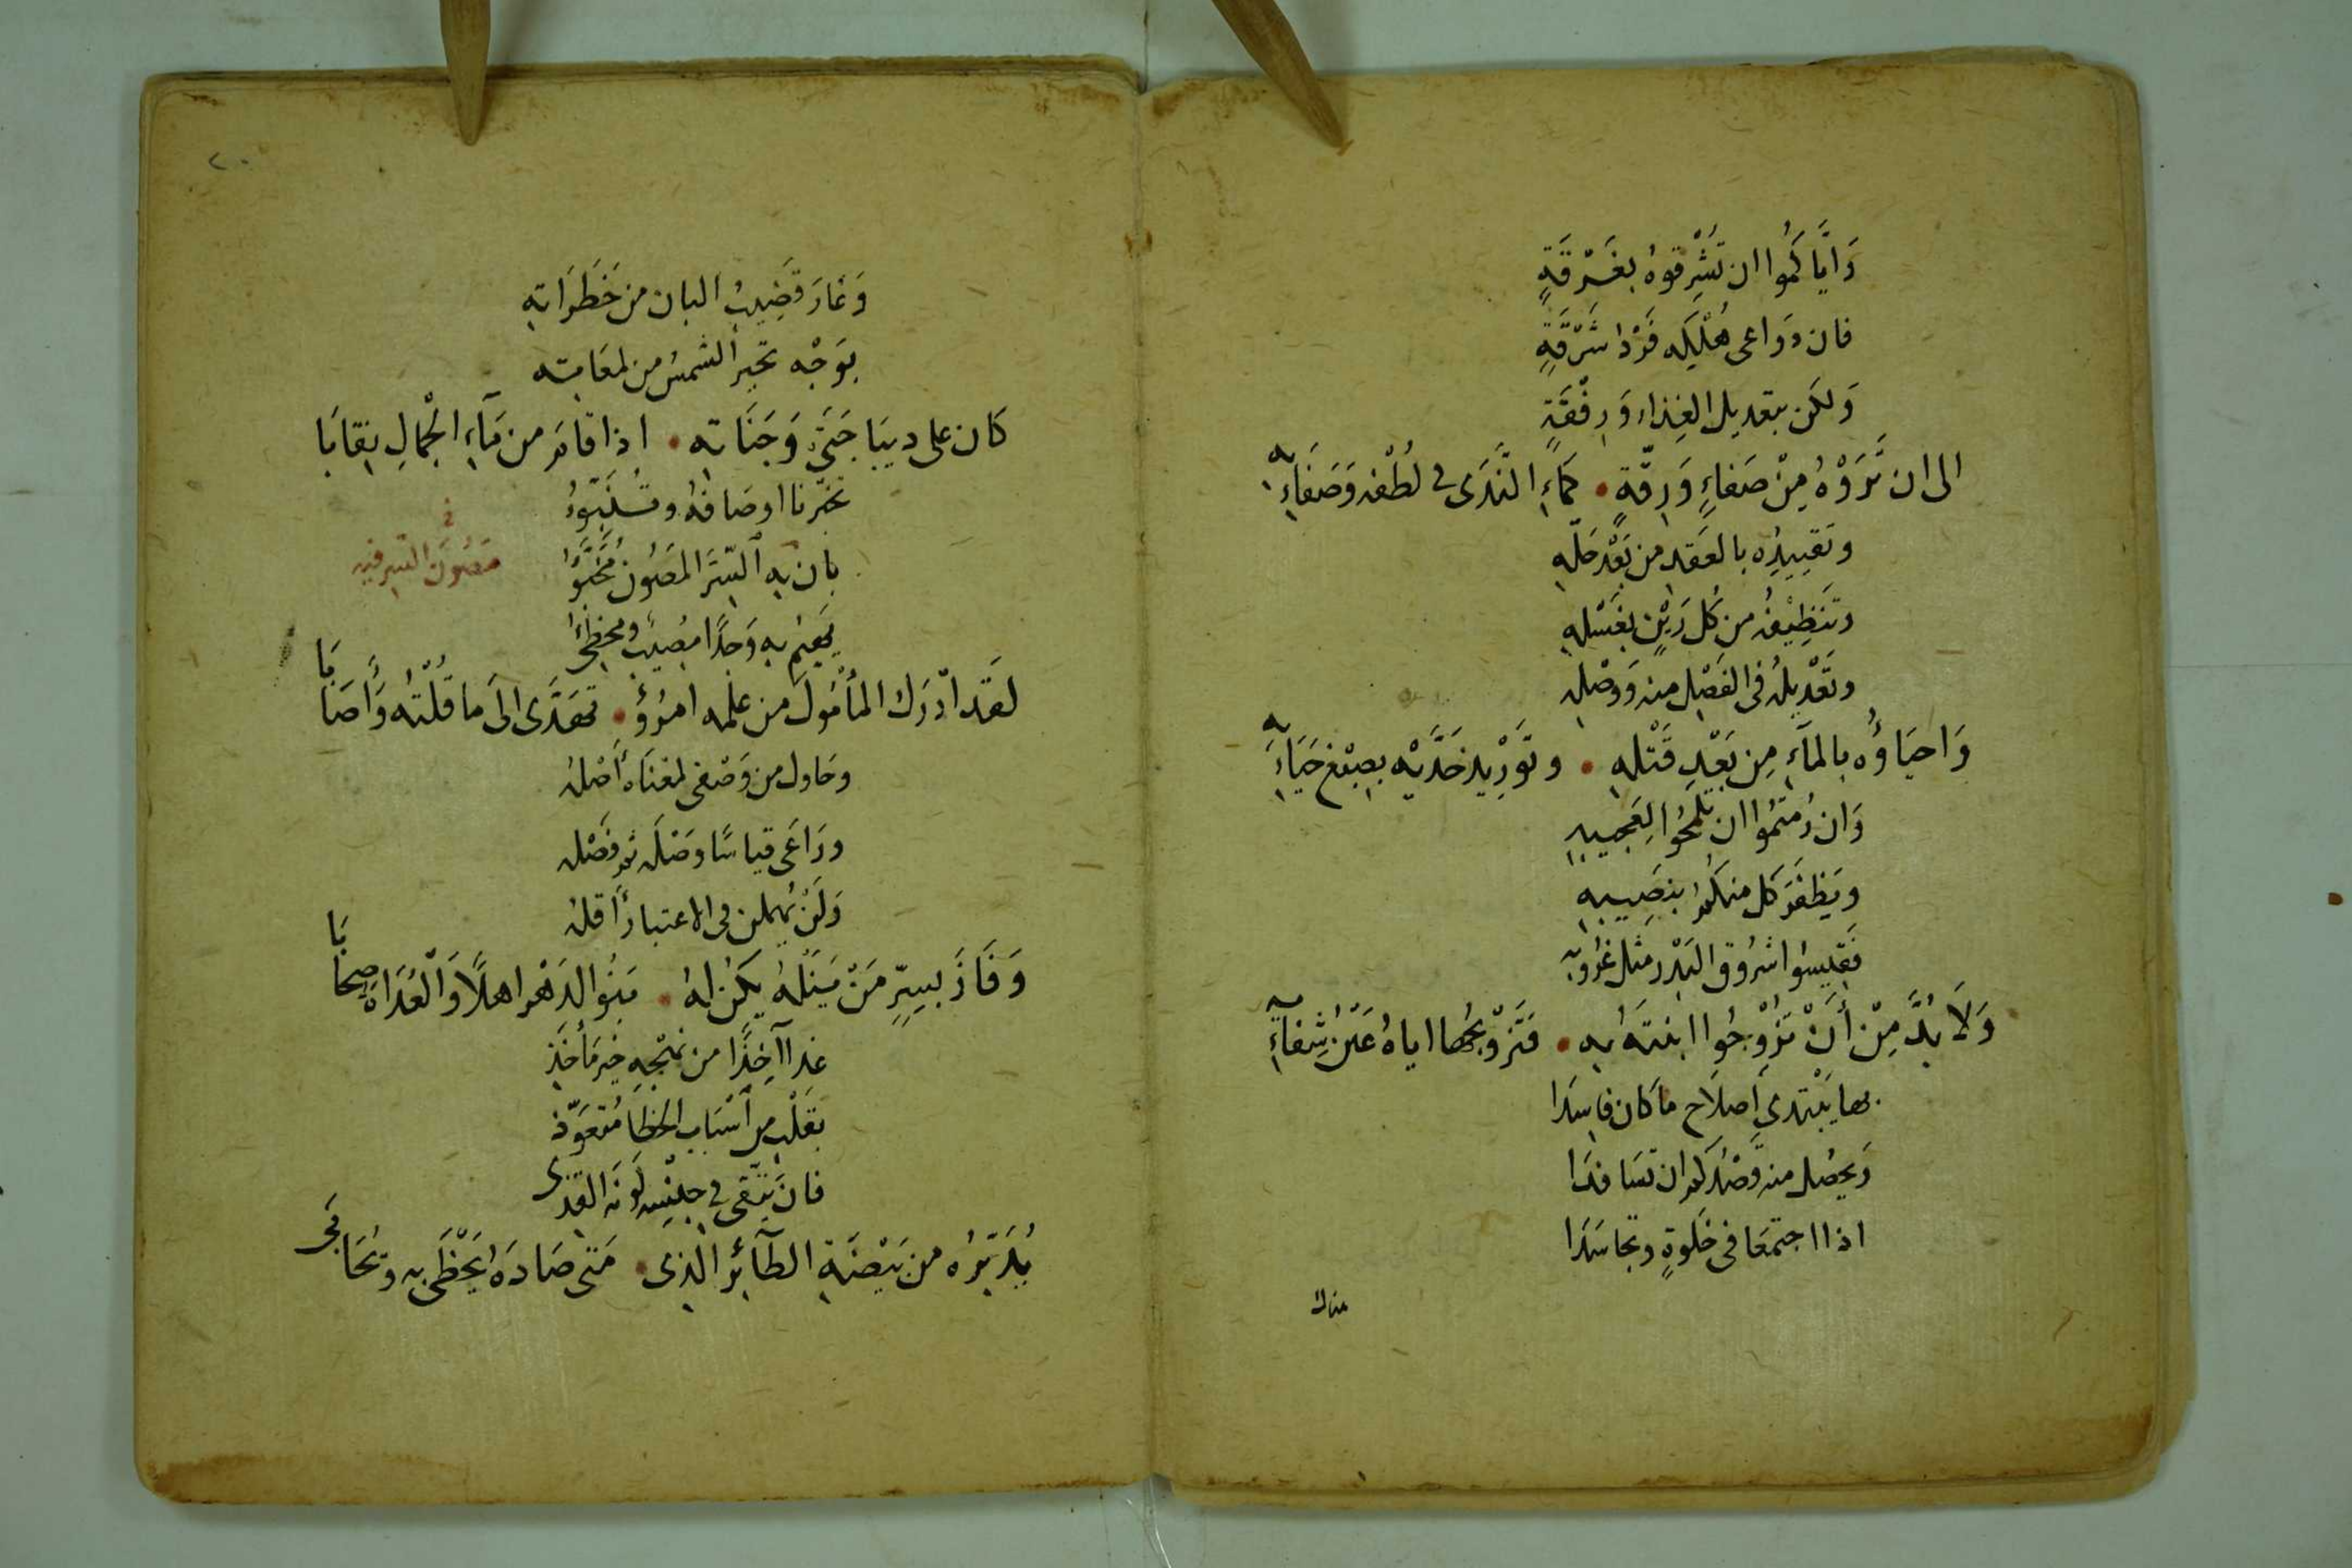 وَايَّاكُمُوا ان تُشْرِقوهُ بغَرْقَةٍ
فان دَوَاعى هُلْكِه فَرْدُ شَرْقَةٍ
وَلكن بتعديل الغِذاء وَرِفْقَةٍ
الى ان تَرَوْهُ مِنْ صَفاءٍ وَرِقّةٍ • كَمَاءِ النَّدَى فى لُطْفه وَصَفَائِه
وتَقييدُه بالعَقد من بَعْد حَلّهِ
وتنَظِيْفُه من كُل رَيْنٍ بغَسْلهِ
وتَعْديلُه فى الفَصْل منه وَوَصْلهِ
وَاحيَاؤُه بالمآءِ مِن بَعْدِ قَتْلهِ • وتَوْرِيد خَدَّيْه بصِبْغ حَيَائِه
وَان رُمتمُوا ان تلمَحُوا لِعَجيبهِ
ويَظفَرَ كل منكمُ بنَصِيبهِ
فَقِيسُوا شرُوق البَدْر مثل غرُوبِه
وَلَا بُدَّ مِنْ أَنْ تزُوْجُوا ابنتَهُ بِه • فتَزْويجُها اياهُ عَيْنُ شِفائِه
بها يَبْتدى اصلَاح ما كان فاسِدَا
وَيحصُل منه وَصْلُكم ان تسَافدَا
اذا اجتمَعَا فى خَلوةٍ وتجاسَدَا
هناك
٢٠
وَغَارَ قضِيبُ البان من خَطَرَاتهِ
بوَجْه تحَير الشمسُ من لمعَاته
كان على ديبَا جَنىَ وَجَنَاته • اذا قامَر من مَآءِ الْجمالِ نِقابَا
تخبّرنا اوصَافهُ وتُنَبّؤُ
بان به السّرَّ المصُون مُخَبَّؤُا
مَصُونَ السّر فيه
يَهيمُ بِه وَجدًا مصُيبٌ ومخطِئُ
لقَد ادْرَك المأمُولَ من عِلْمه امرُؤٌ • تهَدَّى الىَ ما قُلْتُه وَأَصَابَا
وحَاول من وَصْفى لمعْناهُ أصْلهُ
ورَاعَى قياسًا وَصْلَه ثم فَصْلَه
وَلَمْ يُهملن فى الاعتبار أقلهُ
وَفَازَ بسِرٍّ مَنْ يَنَلْهُ يكُن لهُ • بَنُو الدَهْر اهلًا وَالْعُدَاة صِحَابَا
غدا آخِذًا من نَهْجِهِ خير مَأخَذِ
بقَلْبٍ من أسْبَاب الخطَا مُتعَوّذ
فان يَنْتَقى فى جِنْسِه لَوْنَه القَذِى
يُدَبّرُه من بَيْضَة الطآئر الذى • مَتى صَادَهُ يَحْظَى به وتُحَابَى